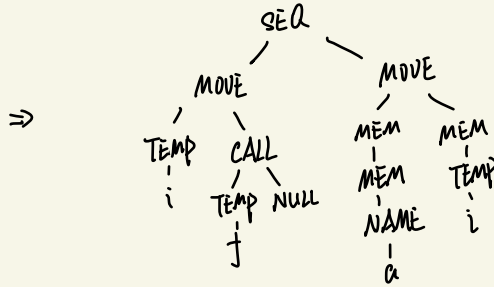 SEQ
MOVE MOVE
⇒ TEMP CALL MEM MEM
i TEMP NULL MEM TEMP
f NAME i
a